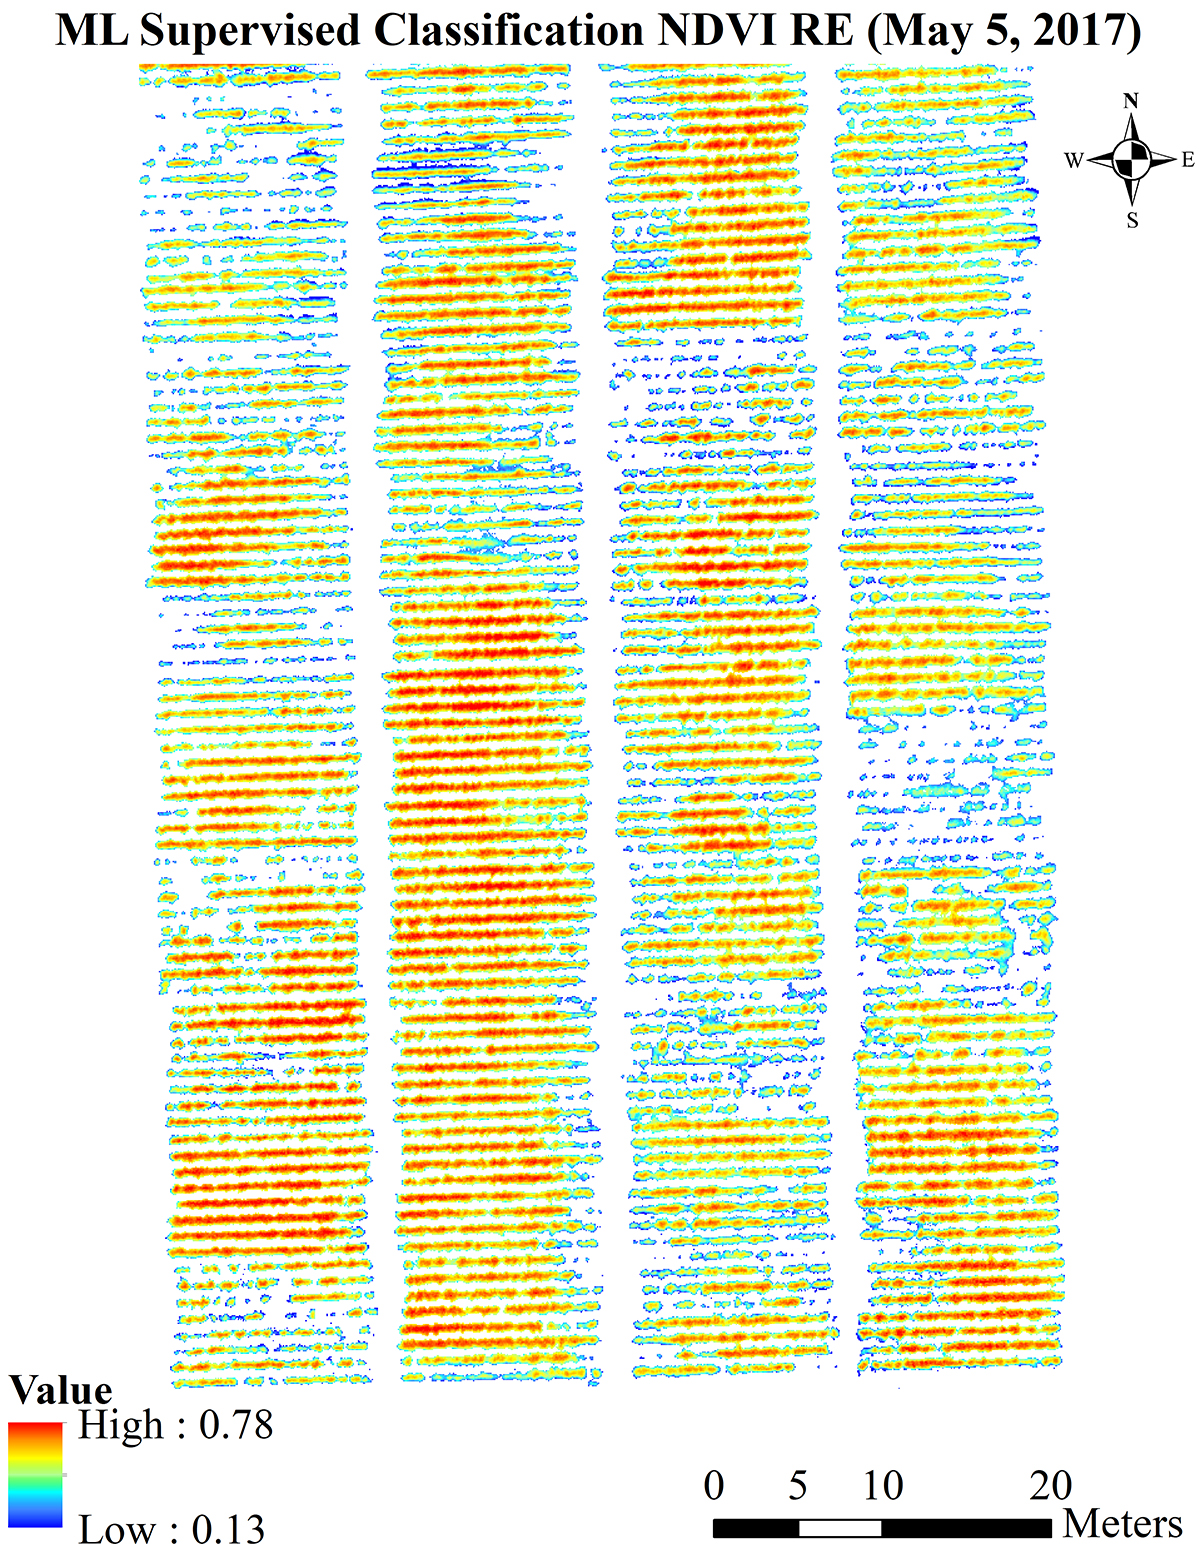 ML Supervised Classification NDVI RE (May 5, 2017)
N
W E
S
Value
High : 0.78
Low : 0.13
0 5 10 20
Meters